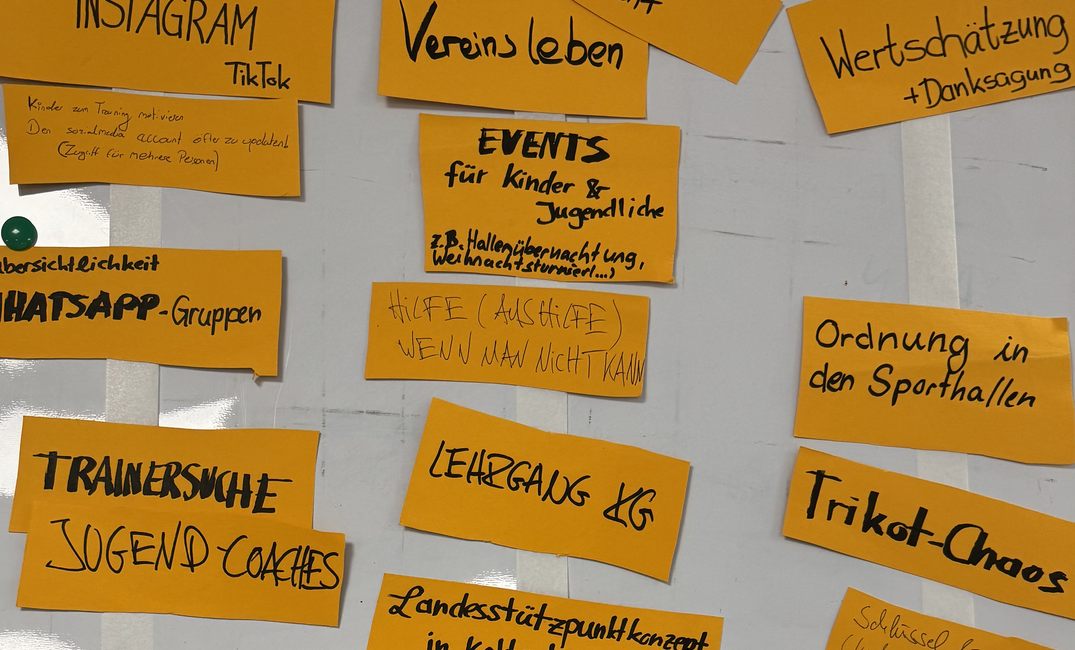 INSTAGRAM
TikTok
Kinder zum Training motivieren
Den sozialmedia account öfter zu updaten!
(Zugriff für mehrere Personen)
übersichtlichkeit
WHATSAPP-Gruppen
TRAINERSUCHE
JUGEND-COACHES
Vereinsleben
EVENTS
für Kinder &
Jugendliche
z.B. Hallenübernachtung,
Weihnachtsturnier(...)
HiLFE (AUSHiLFE)
WENN MAN NiCHT KANN
LEHRGANG KG
Landesstützpunktkonzept
in
Wertschätzung
+Danksagung
Ordnung in
den Sporthallen
Trikot-Chaos
Schlüssel